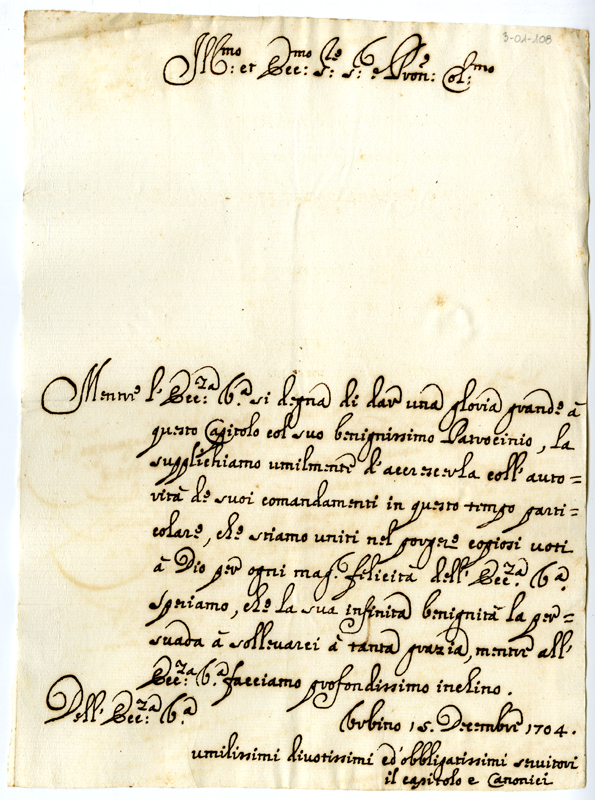 3-01-108
Ill:mo et Ecc:mo S:re S: e Pron:e Col:mo
Mentre l'Ecc:za V.a si degna di dar una gloria grande à
questo Capitolo col suo benignissimo Patrocinio, la
supplichiamo umilmente d'accrescerla coll'auto=
rità de suoi comandamenti in questo tempo parti=
colare, che stiamo uniti nel porgere copiosi voti
à Dio per ogni mag.e felicità dell'Ecc:za V.a
speriamo, che la sua infinita benignità la per=
suada à sollevarci à tanta grazia, mentre all'
Ecc:za V.a facciamo profondissimo inchino.
Dell'Ecc:za V.a
Urbino 15. Decembre 1704.
umilissimi divotissimi ed'obbligatissimi servitori
il capitolo e Canonici